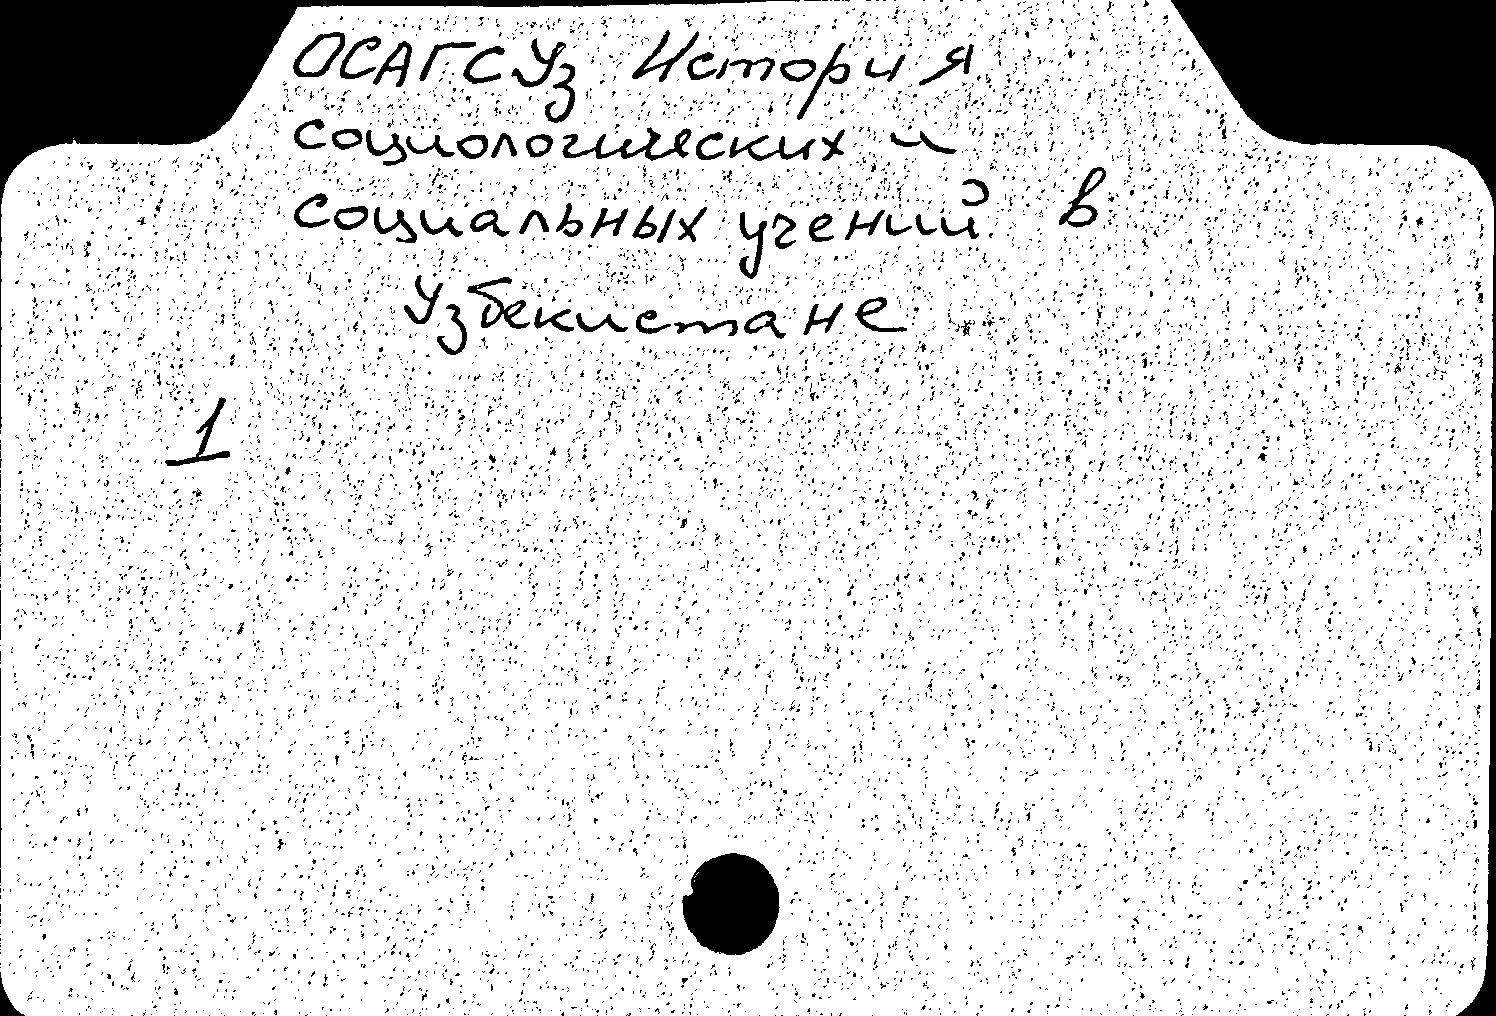 ОСАГСУз История
социологических и
социальных учений в
Узбекистане
1